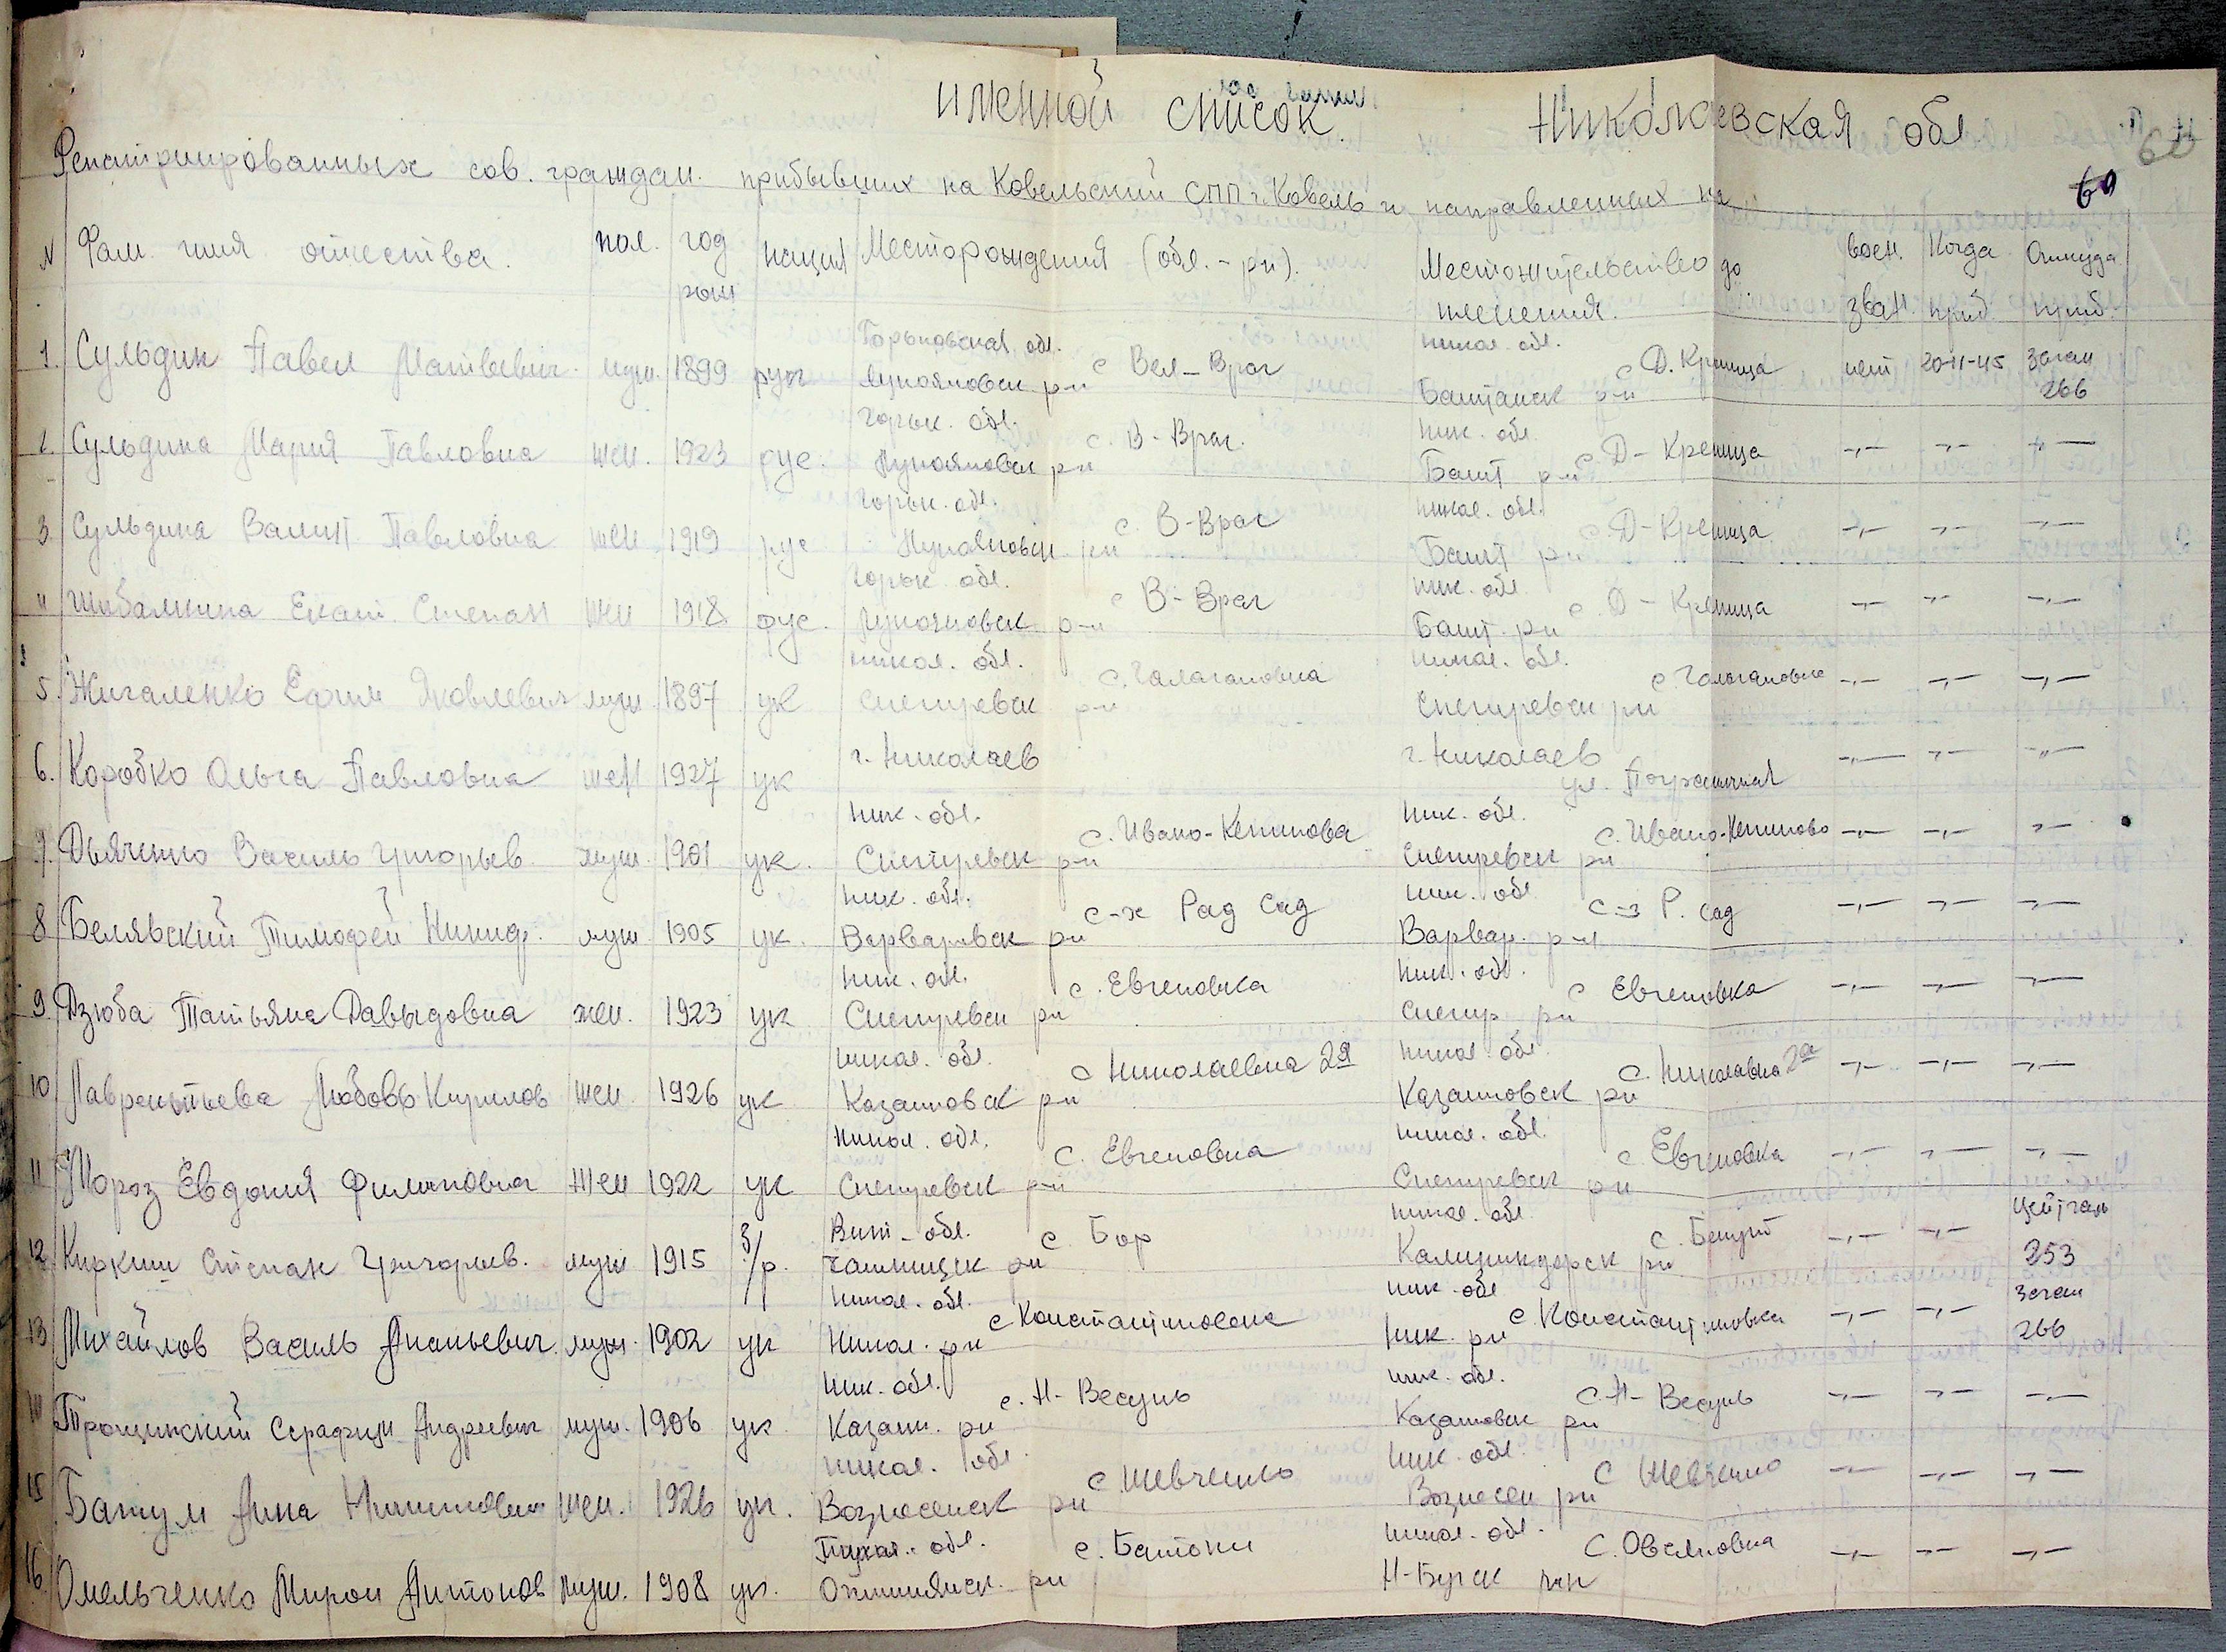 именной список Николаевская обл
60
Репатриированных сов. граждан прибывших на Ковельский СПП г. Ковель и направленных на
N Фам имя отчества. пол. год рож нация Месторождения (обл. - рн). Местожительство до пленения. воен. зван Когда приб. Откуда приб.
1. Сульдин Павел Матвевич. муж. 1899 рус Горьковская обл. Лукояновск. р-н с Вел-Враг Никол обл. Баштанск р-н с Д. Крыница нет 20-11-45 Заган 266
2. Сульдина Мария Павловна жен. 1923 рус. Горьк. обл. Лукояновск рн с. В-Враг. Ник. обл Башт р-н с Д-Креница -„- -„- -„-
3 Сульдина Валент Павловна жен 1919 рус Горьк. обл. Лукояновск рн с. В-Враг Никол. обл. Башт рн с Д-Креница -„- -„- -„-
4 Шибалкина Екат. Степан жен 1918 рус. Горьк обл. Лукояновск р-н с В-Враг Ник. обл Башт. рн с Д-Креница -„- -„- -„-
5. Жигаленко Ефим Яковлевич муж. 1897 ук Никол. обл. Снегиревск р-н с. Галагановка Никол. обл. Снегиревск рн с Галагановка -„- -„- -„-
6. Коробко Ольга Павловна жен 1927 ук г. Николаев г. Николаев ул. Пограничная -„- -„- -„-
7. Дьяченко Василь Григорьев муж. 1901 ук. Ник. обл. Снегиревск рн с. Ивано-Кепинова Ник. обл. Снегиревск рн с. Ивано-Кепиново -„- -„- -„-
8 Белявский Тимофей Никиф. муж 1905 ук. Ник. обл. Варваровск рн с-х Рад Сад Ник. обл Варвар. р-н с-з Р. сад -„- -„- -„-
9. Дзюба Татьяна Давыдовна жен. 1923 ук Ник. обл. Снегиревск рн с. Евгеновка Ник. обл. Снегир рн с Евгеновка -„- -„- -„-
10 Лаврентьева Любовь Кирилов жен 1926 ук Никол. обл. Казанковск рн с Николаевка 2я Никол обл. Казанковск рн с. Николаевка 2я -„- -„- -„-
11 Мороз Евдокия Филиповна жен 1922 ук Никол. обл. Снегиревск р-н с. Евгеновка Никол. обл. Снегиревск рн с Евгеновка -„- -„- -„-
12. Киркин Степан Григорьев. муж 1915 б/р. Вит. обл. Чашницк рн с. Бор Никол. обл Калининдорск рн с. -„- -„- 253
13 Михайлов Василь Ананьевич. муж. 1902 ук Никол. обл. Никол. рн с Константиновка Ник. обл Ник. рн с. Константиновка -„- -„- Заган 266
14 Трощинский Серафим Андреевич муж. 1906 ук Ник. обл. Казанк. рн с. Н-Весунь Ник. обл. Казанковск рн с. Н-Весунь -„- -„- -„-
15 Батум Анна жен. 1926 ук. Никол. обл Вознесенск рн с Шевченко Ник. обл Вознесен рн с Шевченко -„- -„- -„-
16. Омельченко Мирон Антонов муж. 1908 ук. обл. рн с. Батоки Никол. обл. Н-Бугск рн с. Овсяновка -„- -„- -„-